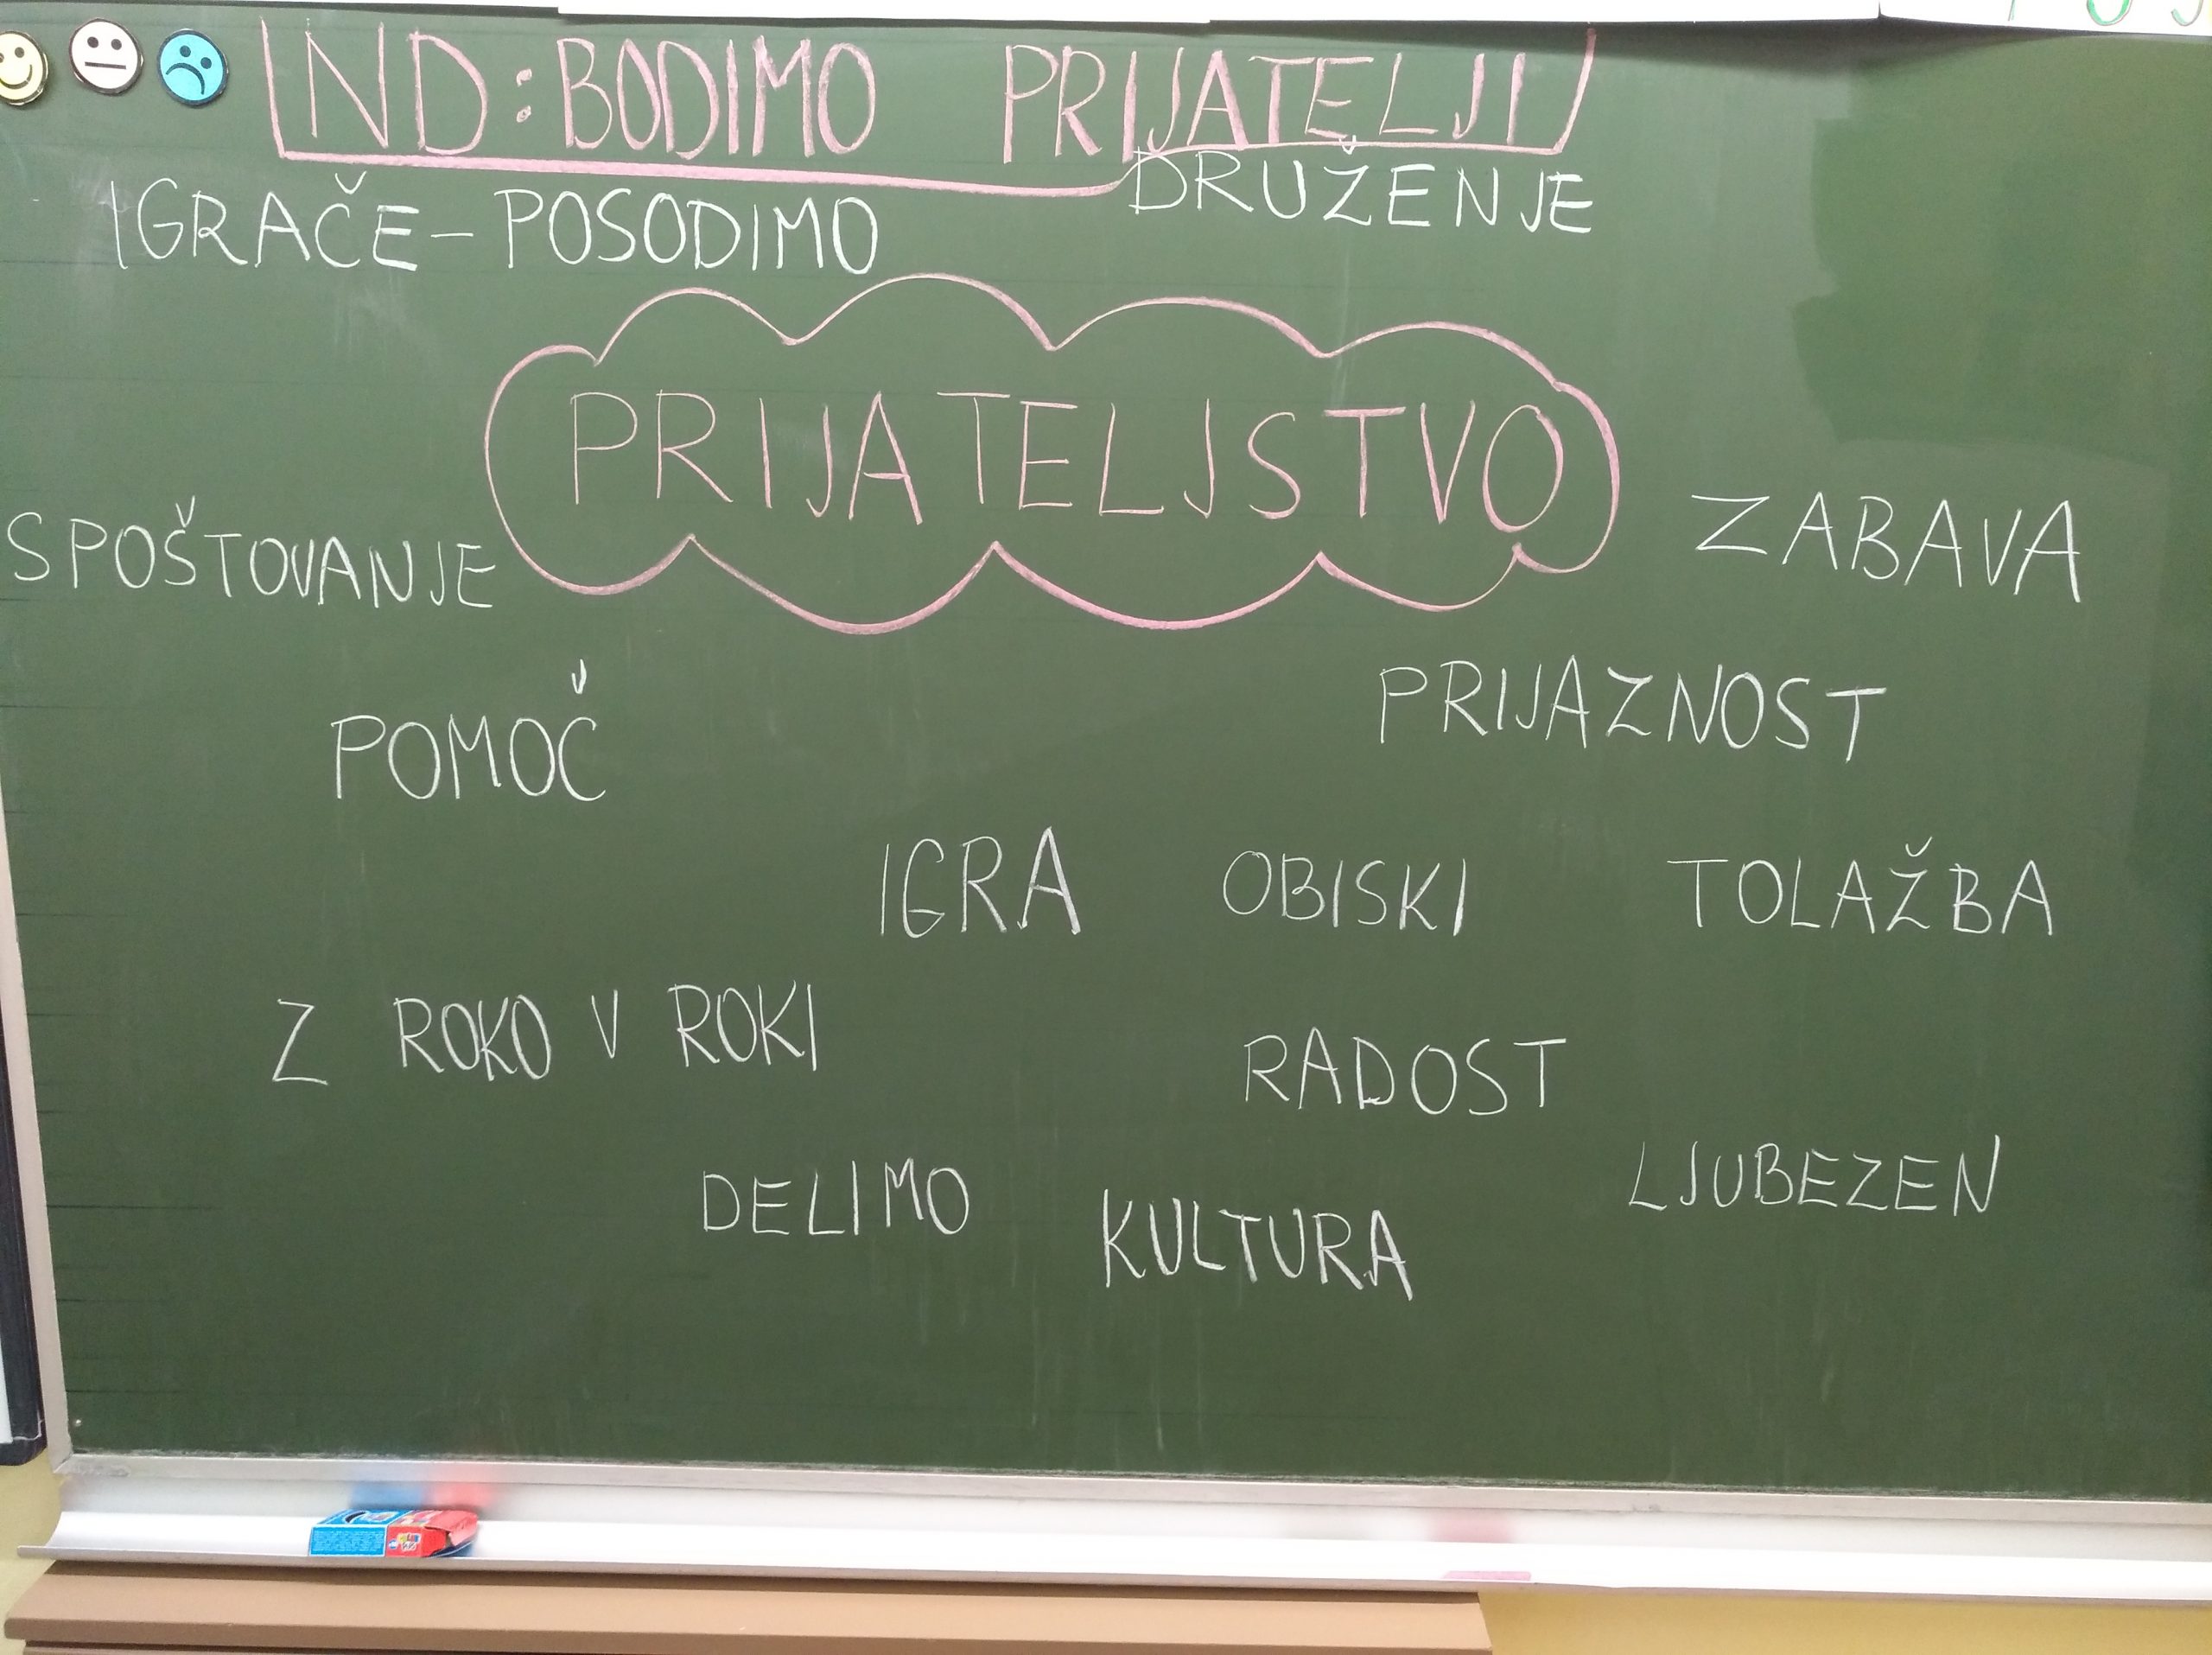 ND: BODIMO PRIJATELJI
IGRAČE - POSODIMO
DRUŽENJE
PRIJATELJSTVO
SPOŠTOVANJE
ZABAVA
POMOČ
PRIJAZNOST
IGRA
OBISKI
TOLAŽBA
Z ROKO V ROKI
RADOST
DELIMO
KULTURA
LJUBEZEN